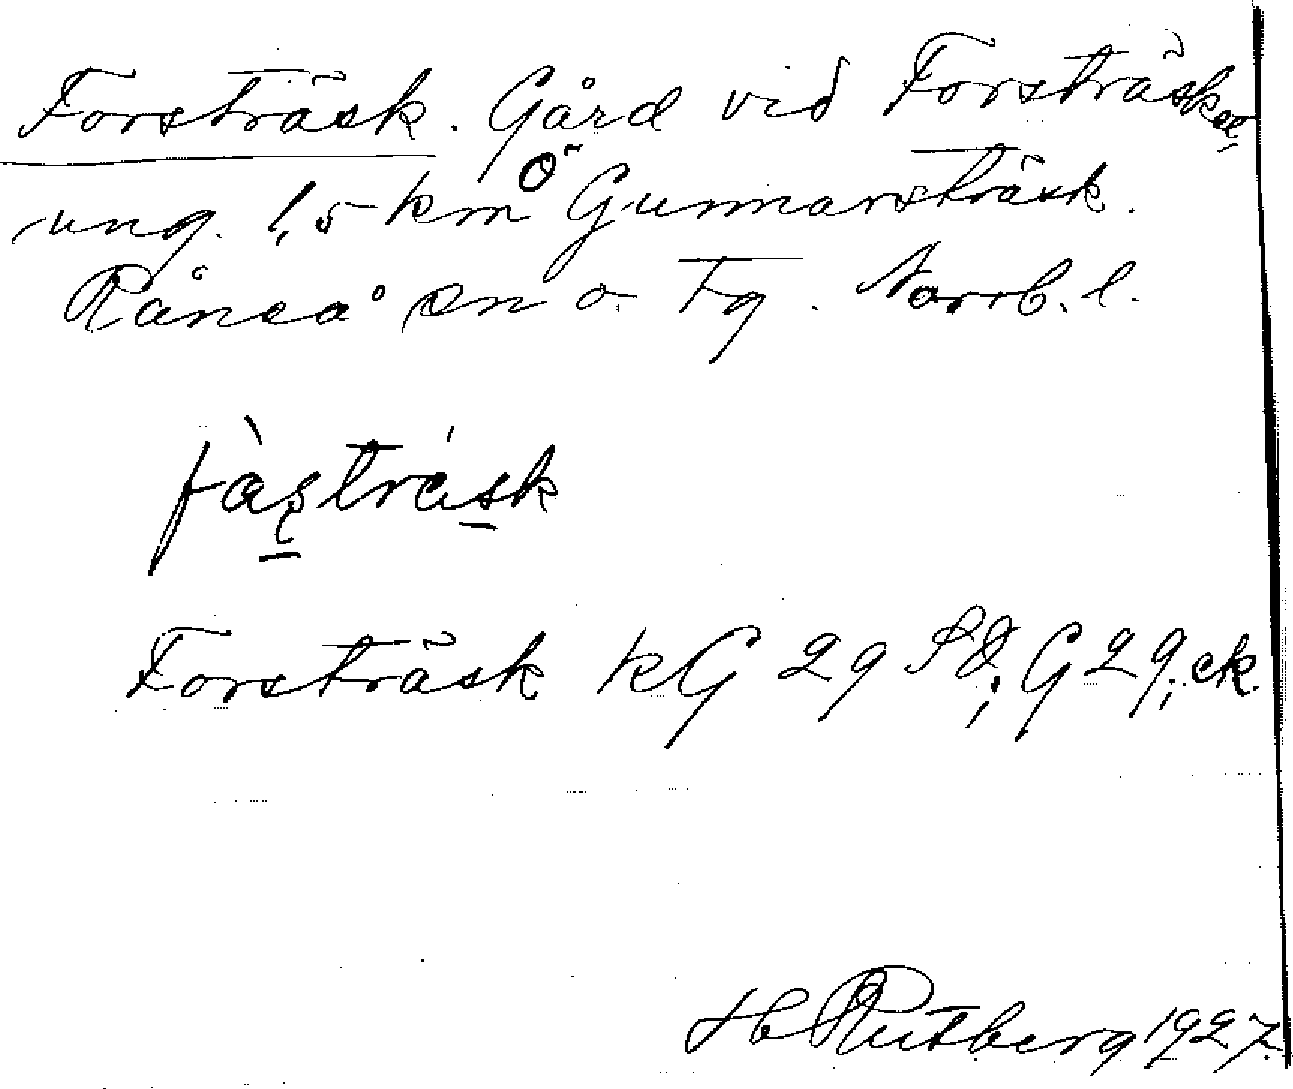 Forsträsk. Gård vid Forsträsket
ung. 1,5 km Ö Gunnarsträsk.
Råneå sn o. Tg. Norrb. l.
fàs̱trásk
Forsträsk kG 29 SO; G 29; ek.
H Rutberg 1927.